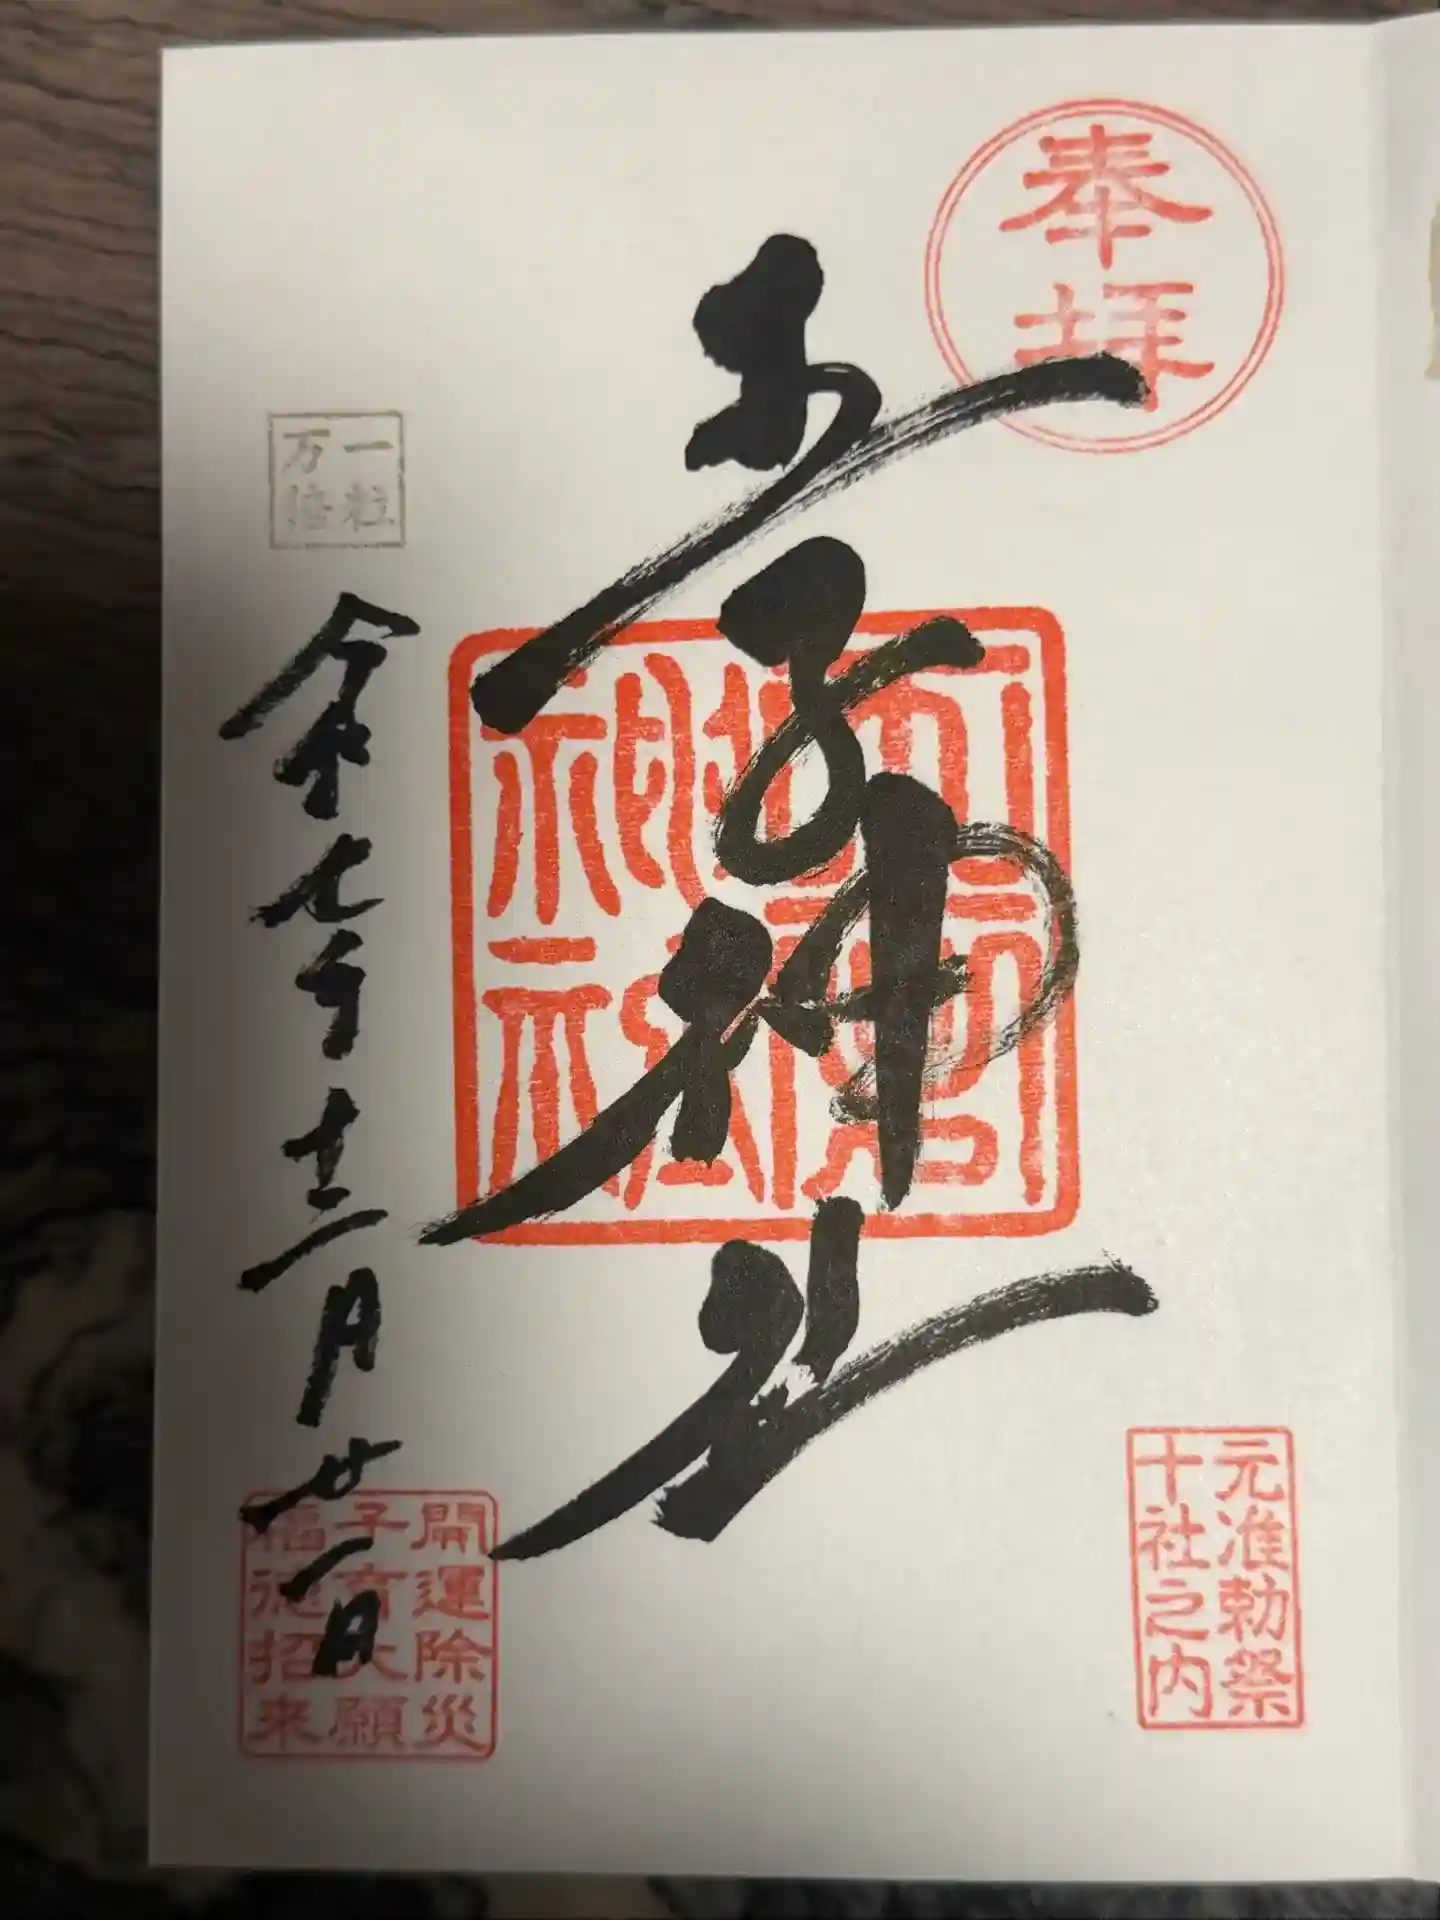 奉拝
元准勅祭
十社之内
王子神社
一粒
万倍
令和七年十二月廿一日
開運除災
子育大願
福徳招来